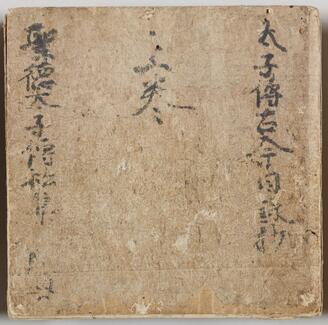 太子傳古今目録抄
二巻
聖徳太子傳私集